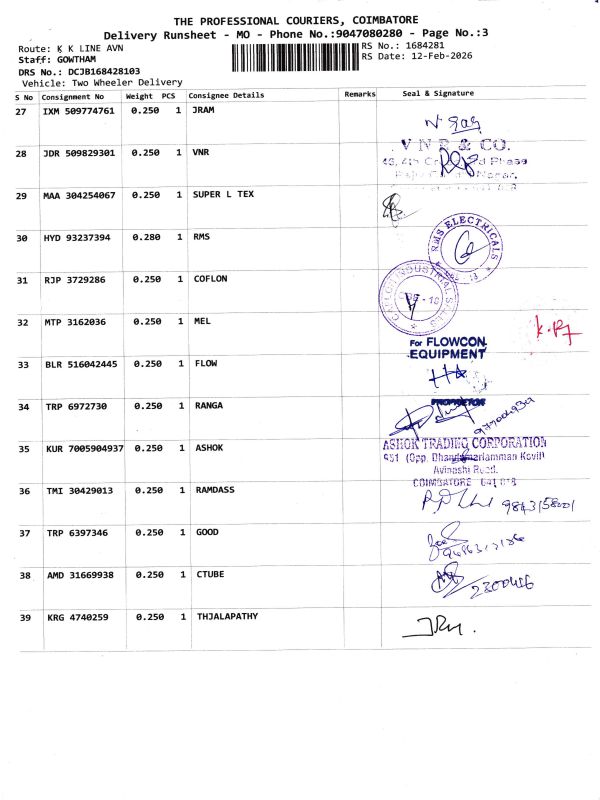 THE PROFESSIONAL COURIERS, COIMBATORE
Delivery Runsheet - MO - Phone No.:9047080280 - Page No.:3
Route: K K LINE AVN
RS No.: 1684281
Staff: GOWTHAM
RS Date: 12-Feb-2026
DRS No.: DCJB168428103
Vehicle: Two Wheeler Delivery
S No Consignment No Weight PCS Consignee Details Remarks Seal & Signature
27 IXM 509774761 0.250 1 JRAM
28 JDR 509829301 0.250 1 VNR
V N R & CO.
29 MAA 304254067 0.250 1 SUPER L TEX
30 HYD 93237394 0.280 1 RMS
RMS ELECTRICALS
31 RJP 3729286 0.250 1 COFLON
32 MTP 3162036 0.250 1 MEL
For FLOWCON
EQUIPMENT
33 BLR 516042445 0.250 1 FLOW
34 TRP 6972730 0.250 1 RANGA
PROPRIETOR
35 KUR 7005904937 0.250 1 ASHOK
ASHOK TRADING CORPORATION
(Opp. Dhandumariamman Kovil)
Avinashi Road.
COIMBATORE
36 TMI 30429013 0.250 1 RAMDASS
37 TRP 6397346 0.250 1 GOOD
38 AMD 31669938 0.250 1 CTUBE
39 KRG 4740259 0.250 1 THJALAPATHY